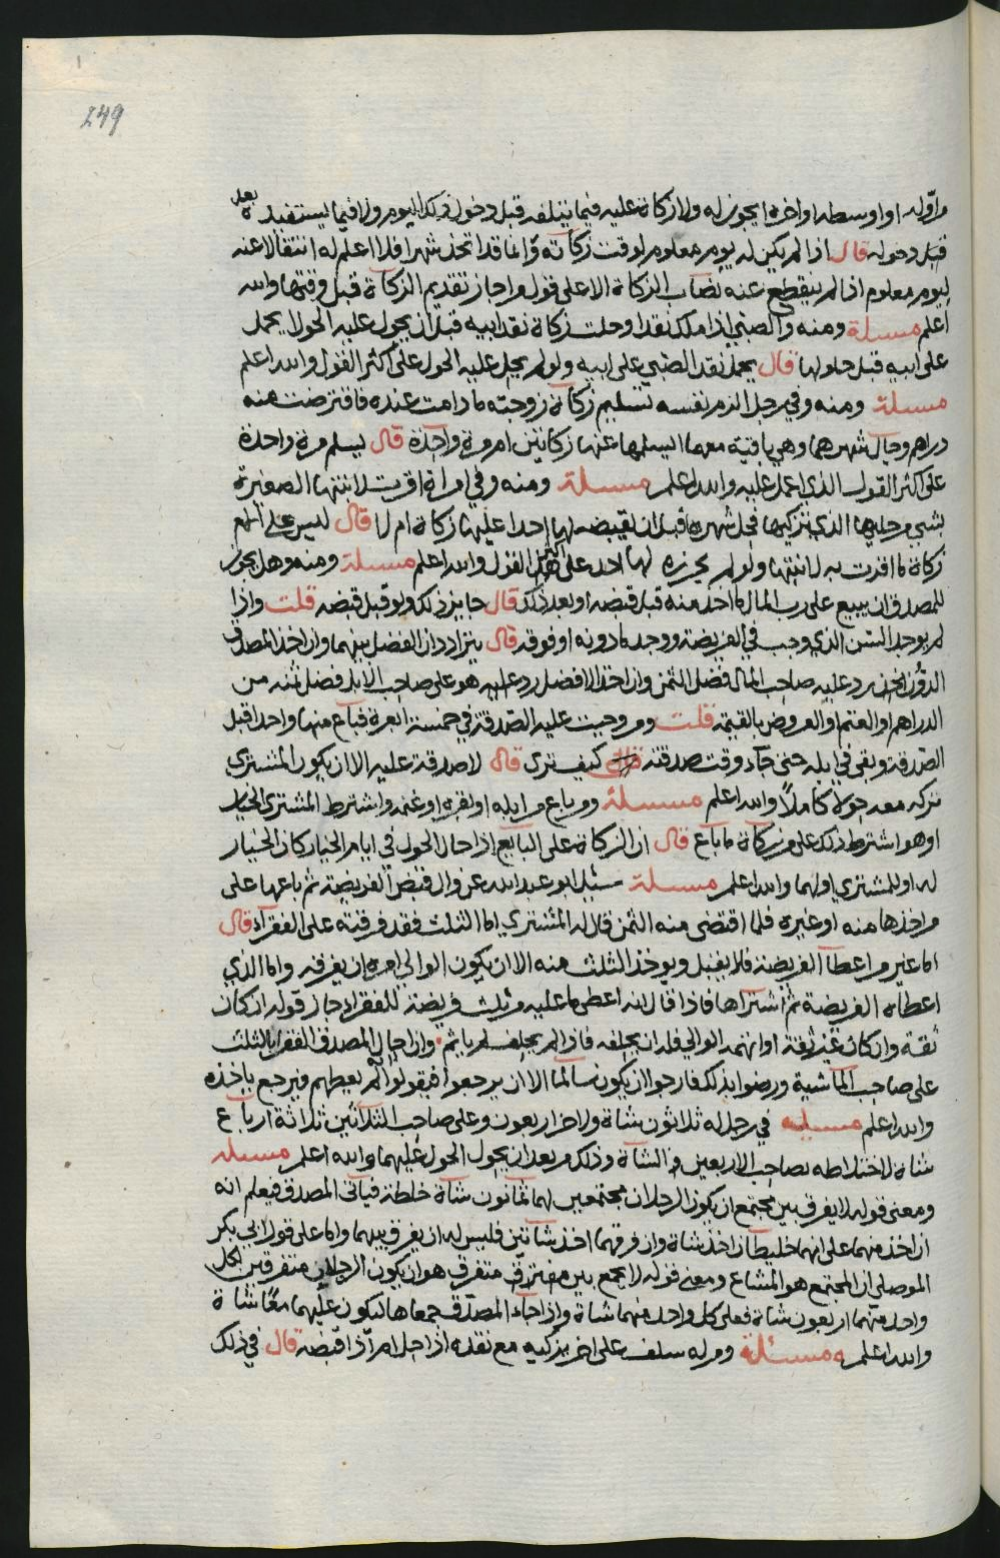 249
من اوّله او اوسطه او اخره ايجوز له ولا زكاة عليه فيما يتلفه قبل دخول ذلك اليوم ولا فيما يستفيده بعد
قبل دخوله قال اذا لم يكن له يوم معلوم لوقت زكاته وانما قد اتخذ شهرا فلا اعلم له انتقالا عنه
ليوم معلوم اذا لم ينقطع عنه نصاب الزكاة الا على قول من اجاز تقديم الزكاة قبل وقتها والله
اعلم مسئلة ومنه والصبي اذا ملك نقدا وحلت زكاة نقد ابيه قبل ان يحول عليه الحول ايحمل
على ابيه قبل حلولها قال يحمل نقد الصبي على ابيه ولو لم يحل عليه الحول على اكثر القول والله اعلم
مسئلة ومنه وفي رجل الزم نفسه تسليم زكاة زوجته ما دامت عنده فاقترضت منه
دراهم وحال شهرهما وهي باقية معها ايسلمها عنها زكاتين ام مرة واحدة قال يسلم مرة واحدة
على اكثر القول الذي اعمل عليه والله اعلم مسئلة ومنه وفي امراة اقرت لابنتها الصغيرة
بشيء من حليها الذي تزكيها فحل شهره قبل ان يقبضه لها احد اعليها زكاة ام لا قال ليس على الام
زكاة ما اقرت به لابنتها ولو لم يحرزه لها احد على اكثر القول والله اعلم مسئلة ومنه وهل يجوز
للمصدق ان يبيع على رب المال ما اخذ منه قبل قبضه او بعد ذلك قال جايز ذلك ولو قبل قبضه قلت واذا
لم يوجد السن الذي وجب في الفريضة ووجد ما دونه او فوقه قال يترادان الفضل بينهما وان اخذ المصدق
الدون اخذ برد عليه صاحب المال فضل الثمن وان اخذ الافضل رد عليه هو على صاحب الابل فضل ثمنه من
الدراهم او الغنم او العروض بالقيمة قلت ومن وجبت عليه الصدقة في خمسة ابعرة فباع منها واحدا قبل
الصدقة وبقي في ابله حتى جاء وقت صدقته كيف ترى قال لا صدقة عليه الا ان يكون المشتري
تركه معه حولا كاملاً والله اعلم مسئلة ومن باع من ابله او بقره او غنمه واشترط المشتري الخيار
او هو اشترط ذلك على من زكاة ما باع قال ان الزكاة على البايع اذا حال الحول في ايام الخيار كان الخيار
له او للمشتري او لهما والله اعلم مسئلة سئل ابو عبدالله عن وال قبض الفريضة ثم باعها على
من اخذها منه او غيره فلما اقتضى منه الثمن قال له المشتري اما الثلث فقد فرقته على الفقرآء قال
اما غير من اعطآ الفريضة فلا يقبل ويوخذ الثلث منه الا ان يكون الوالي امره ان يفرقه واما الذي
اعطاه الفريضة ثم اشتراها فاذا قال انه اعطى ما عليه من ثلث فريضة للفقراء جاز قوله ان كان
ثقة وان كان غير ثقة او اتهمه الوالي فله ان يحلفه فاذا لم يحلفه لم ياثم وان احال المصدق الفقرا بالثلث
على صاحب الماشية ورضوا بذلك فارجو ان يكون سالما الا ان يرجعوا فيقولوا لم يعطهم فيرجع ياخذه
والله اعلم مسئلة في رجل له ثلاثون شاة ولاخر اربعون وعلى صاحب الثلاثين ثلاثة ارباع
شاة لاختلاطه بصاحب الاربعين في الشاة وذلك من بعد ان يحول الحول عليهما والله اعلم مسئلة
ومعنى قوله لا يفرق بين مجتمع ان يكون الرجلان مجتمعين لهما ثمانون شاة خلطة فياتي المصدق فيعلم انه
ان اخذ منهما على انهما خليطان اخذ شاة وان فرقهما اخذ شاتين فليس له ان يفرق بينهما واما على قول ابي بكر
الموصلي ان المجتمع هو المشاع ومعنى قوله لا يجمع بين مفترق متفرق هو ان يكون الرجلان متفرقين لكل
واحد منهما اربعون شاة فعلى كل واحد منهما شاة واذا جاء المصدق جمعاها ليكون عليهما معًا شاة
والله اعلم مسئلة ومن له سلف على اخر يزكيه مع نقده اذا حل ام اذا قبضه قال في ذلك